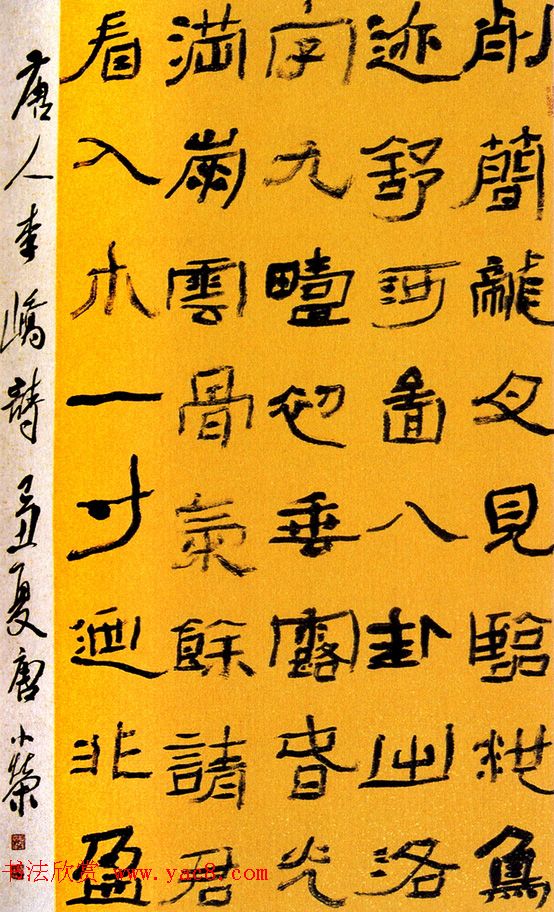 削簡龍文見臨池鳥
迹舒河圖八卦出洛
字九疇初垂露春光
滿崩雲骨氣餘請君
看入木一寸迺非盈
唐人李嶠詩己丑夏唐小榮
书法欣赏 www.yac8.com